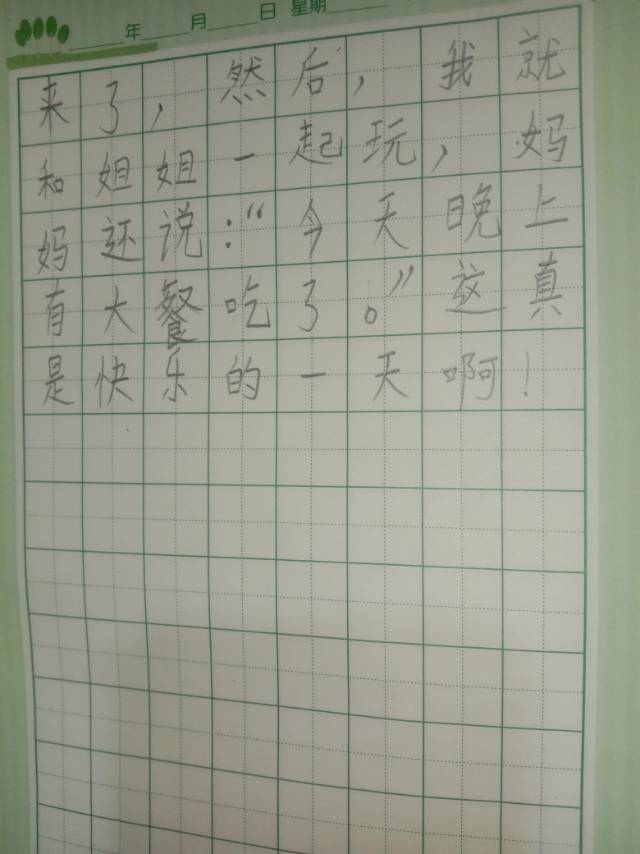 年 月 日 星期
来了，然后，我就
和姐姐一起玩，妈
妈还说：“今天晚上
有大餐吃了。”这真
是快乐的一天啊！